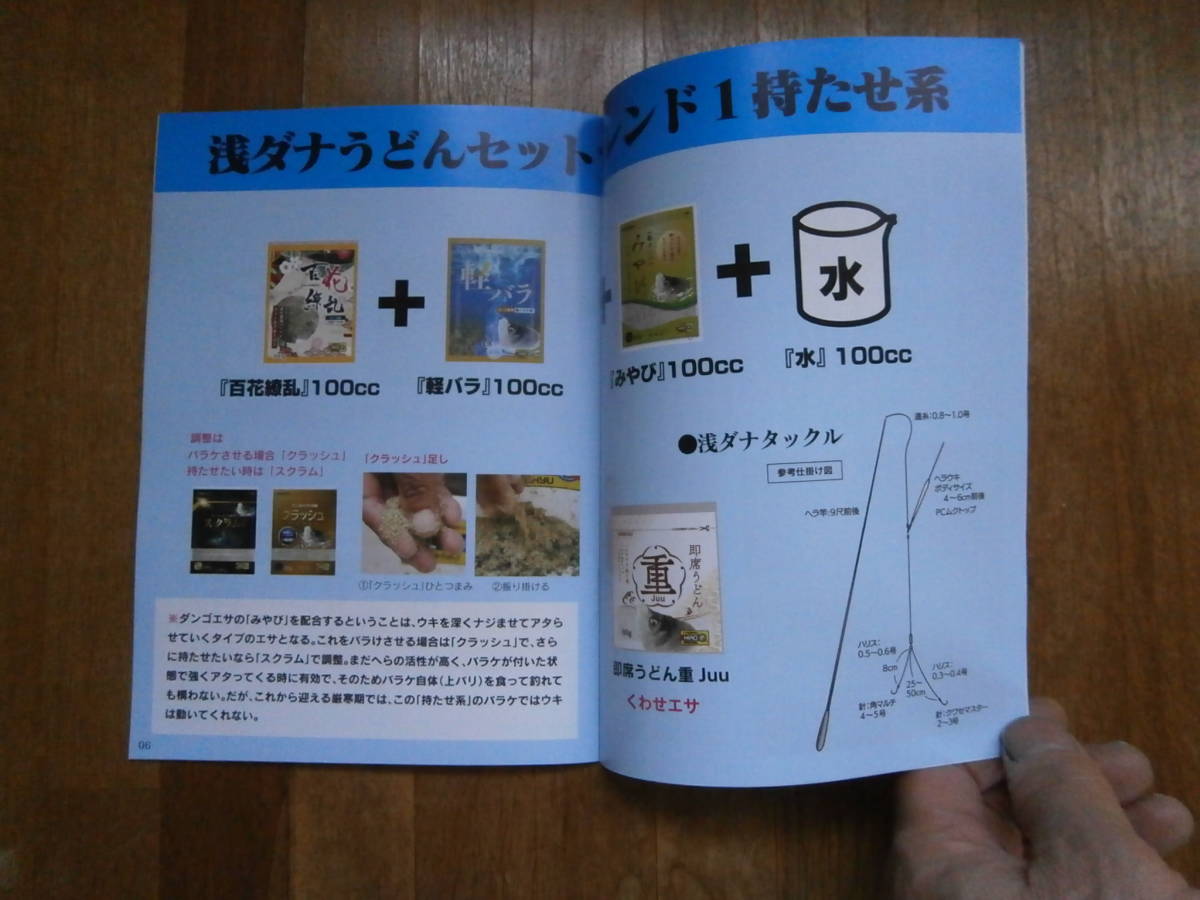 浅ダナうどんセット
レンド1持たせ系
百花繚乱
軽バラ
みやび
水
『百花繚乱』100cc
『軽バラ』100cc
『みやび』100cc
『水』 100cc
調整は
バラケさせる場合「クラッシュ」
持たせたい時は「スクラム」
「クラッシュ」足し
スクラム
クラッシュ
①「クラッシュ」ひとつまみ
②振り掛ける
※ダンゴエサの「みやび」を配合するということは、ウキを深くナジませてアタら
せていくタイプのエサとなる。これをバラけさせる場合は「クラッシュ」で、さら
に持たせたいなら「スクラム」で調整。まだへらの活性が高く、バラケが付いた状
態で強くアタってくる時に有効で、そのためバラケ自体(上バリ)を食って釣れて
も構わない。だが、これから迎える厳寒期では、この「持たせ系」のバラケではウキ
は動いてくれない。
06
●浅ダナタックル
参考仕掛け図
道糸:0.8〜1.0号
ヘラウキ
ボディサイズ
4〜6cm前後
PCムクトップ
ヘラ竿:9尺前後
ハリス:
0.5〜0.6号
8cm
ハリス:
0.3〜0.4号
25〜
50cm
針:角マルチ
4〜5号
針:クワセマスター
2〜3号
即席うどん
重
Juu
即席うどん重 Juu
くわせエサ